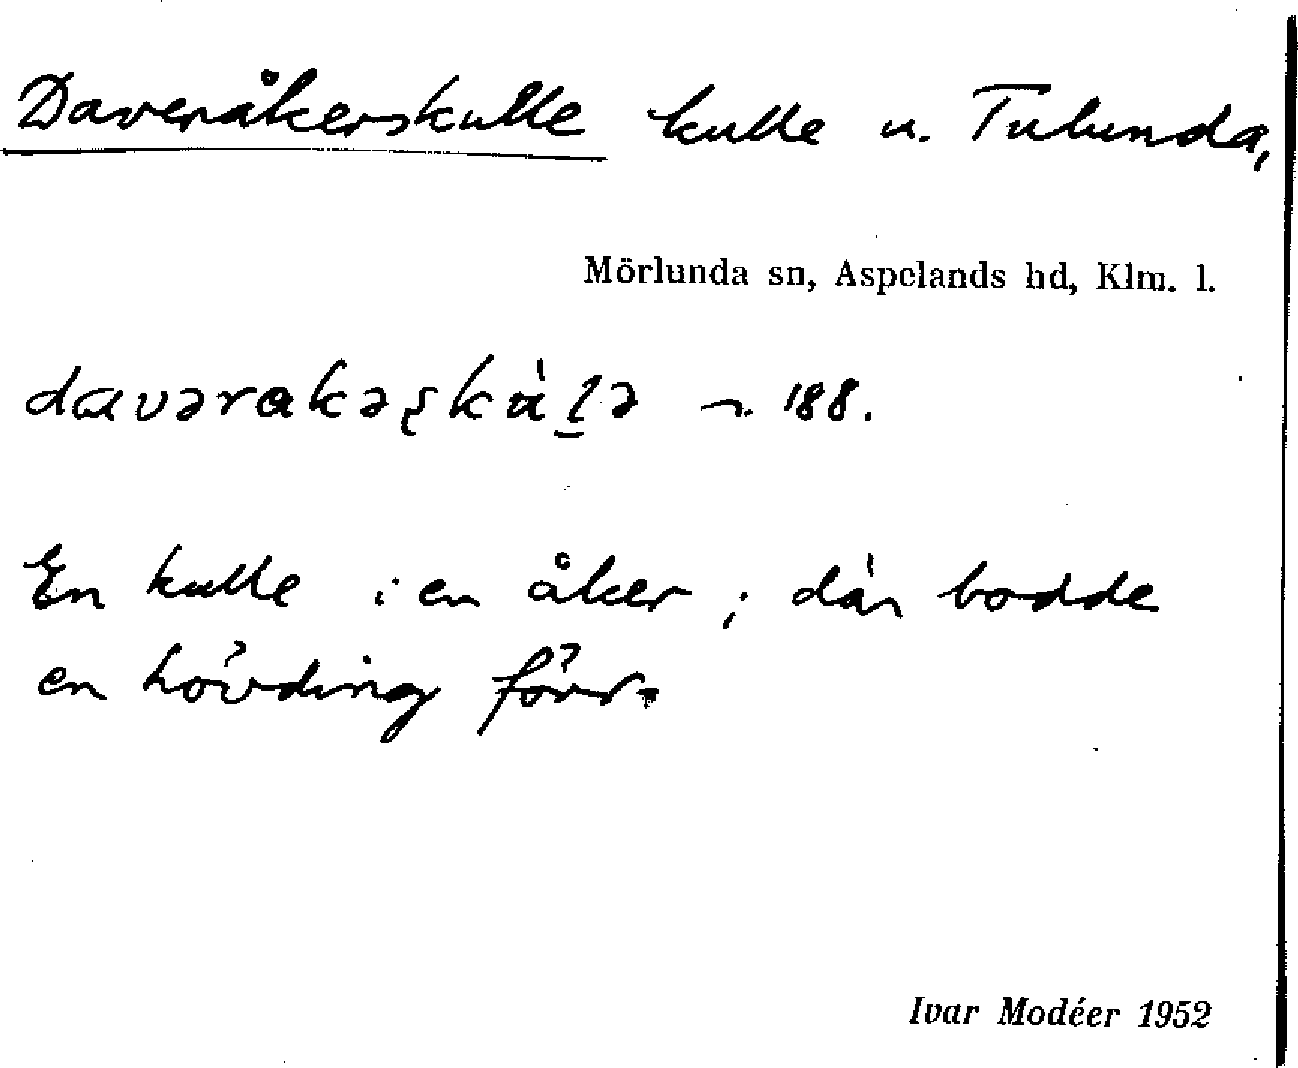 Daveråkerskulle kulle u. Tulunda,
Mörlunda sn, Aspelands hd, Klm. l.
188.
En kulle i en åker; där bodde
en hövding förr.
Ivar Modéer 1952